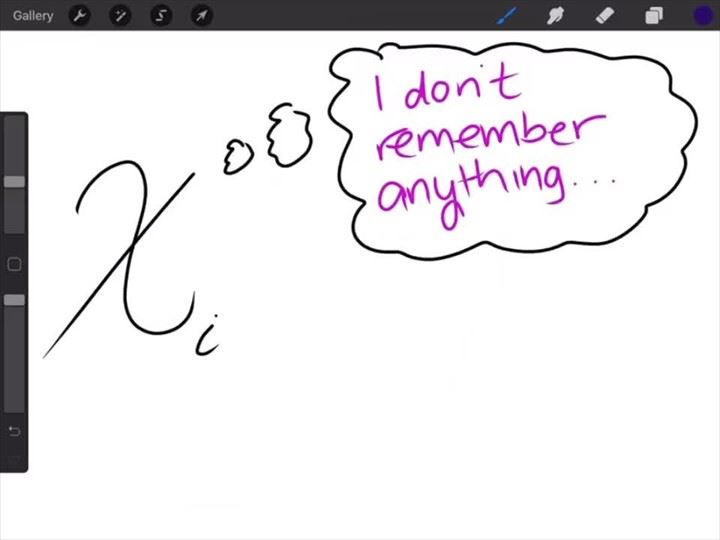 Gallery
I don't
remember
anything...
Xi